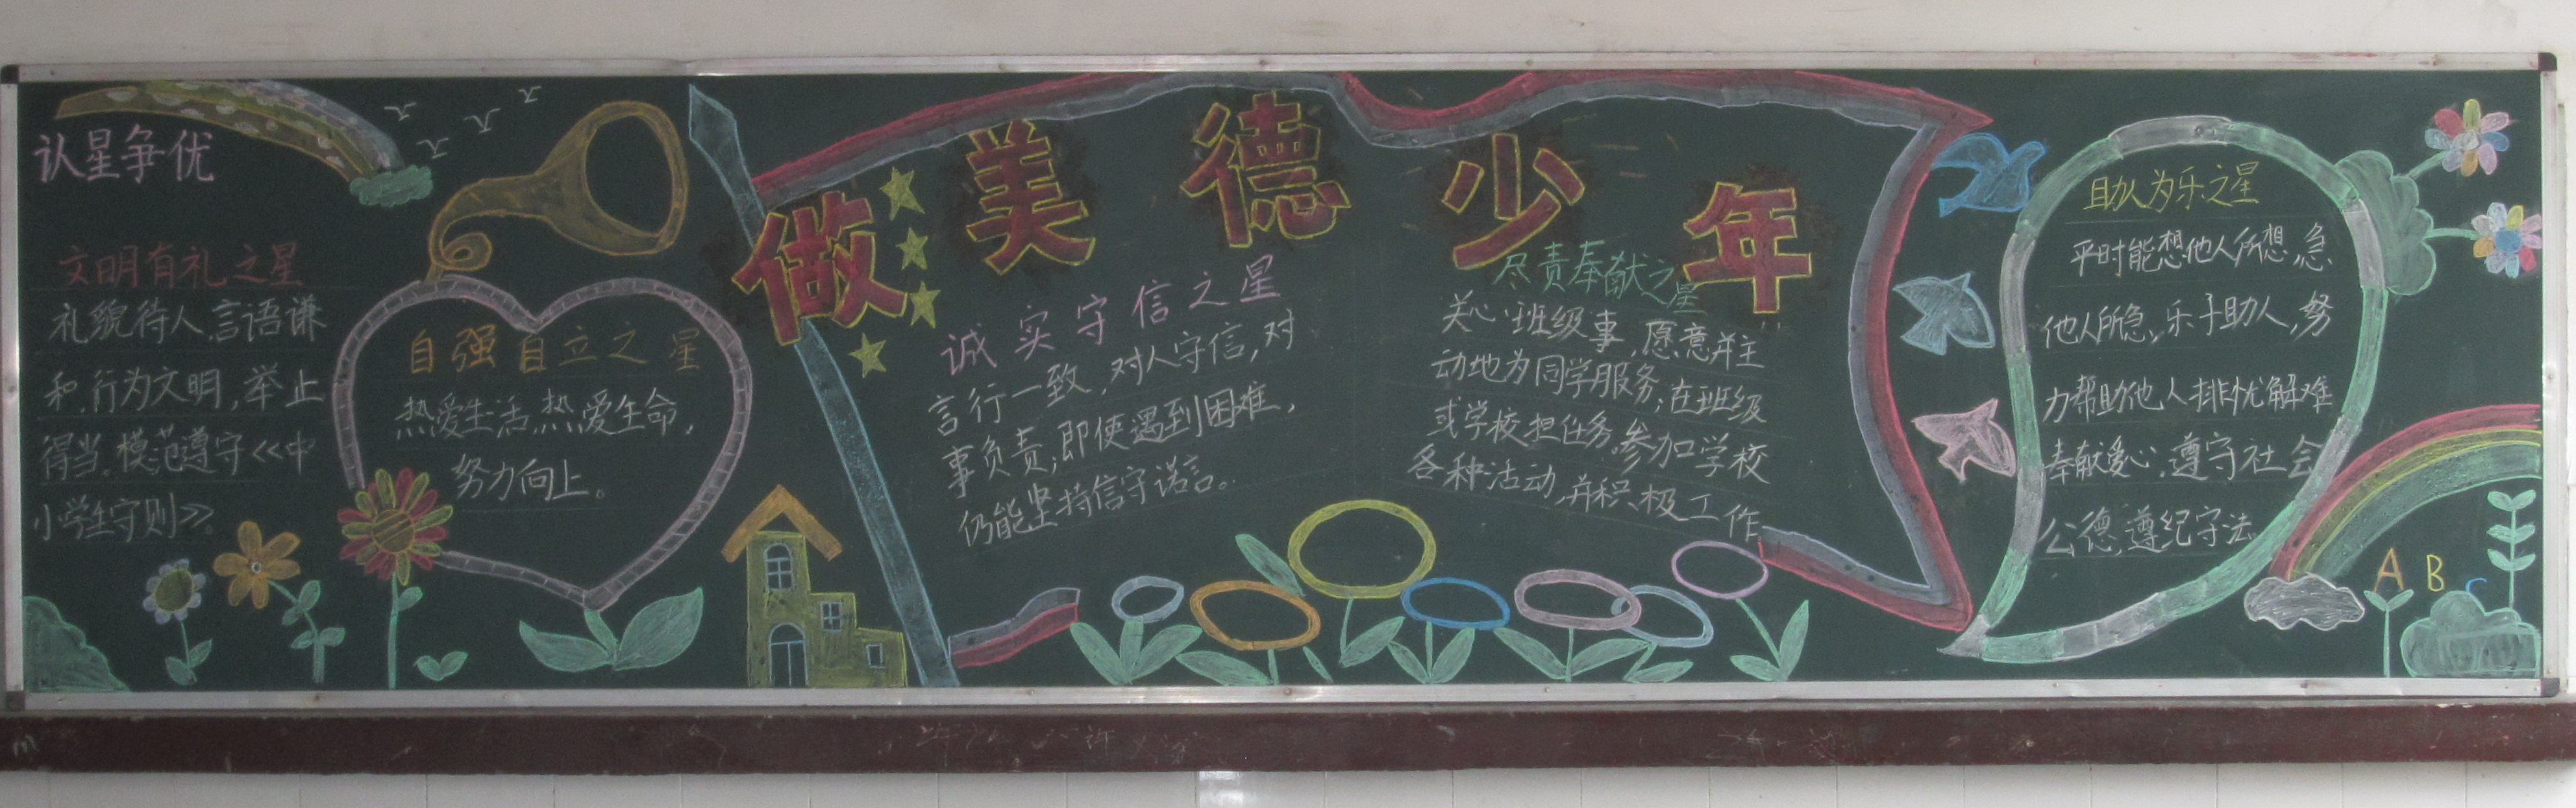 认星争优
文明有礼之星
礼貌待人,言语谦
和,行为文明,举止
得当,模范遵守《中
小学生守则》。
自强自立之星
热爱生活,热爱生命,
努力向上。
做美德少年
诚实守信之星
言行一致,对人守信,对
事负责,即使遇到困难,
仍能坚持信守诺言。
尽责奉献之
星
关心班级事,愿意并主
动地为同学服务;在班级
或学校担任务,参加学校
各种活动,并积极工作
助人为乐之星
平时能想他人所想,急
他人所急,乐于助人,努
力帮助他人排忧解难
奉献爱心,遵守社会
公德,遵纪守法
A B C